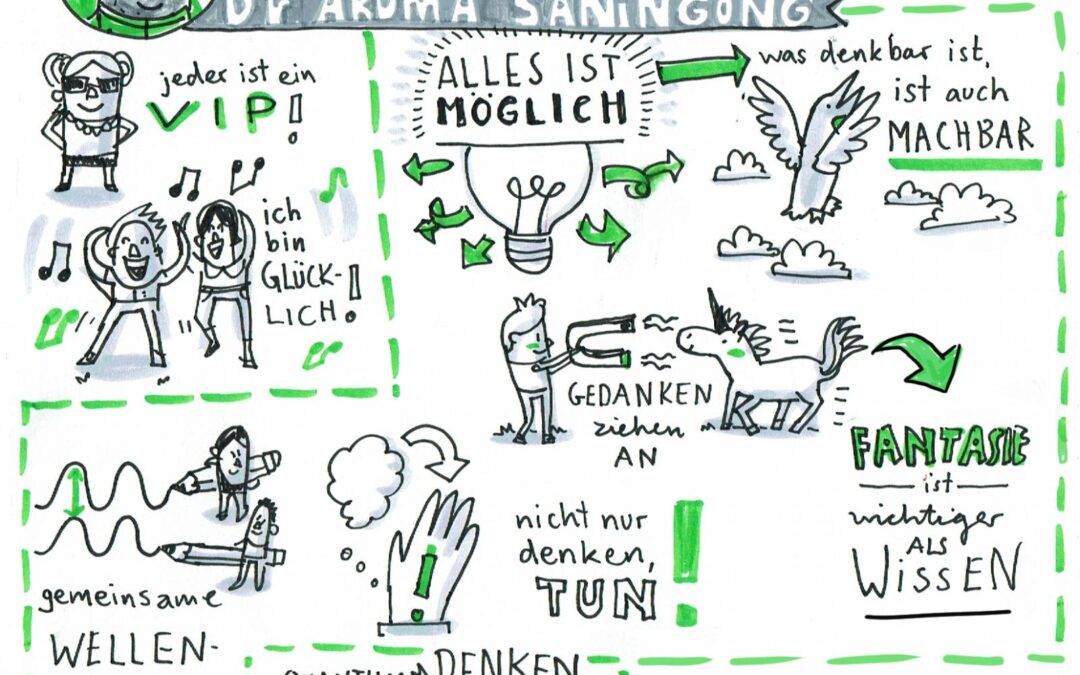 Dr AKUMA SANINGONG
jeder ist ein
VIP!
ich
bin
GLÜCK-
LICH!
ALLES IST
MÖGLICH
was denkbar ist,
ist auch
MACHBAR
GEDANKEN
ziehen
AN
FANTASIE
ist
wichtiger
ALS
WISSEN
nicht nur
denken,
TUN!
gemeinsame
WELLEN-
DENKEN